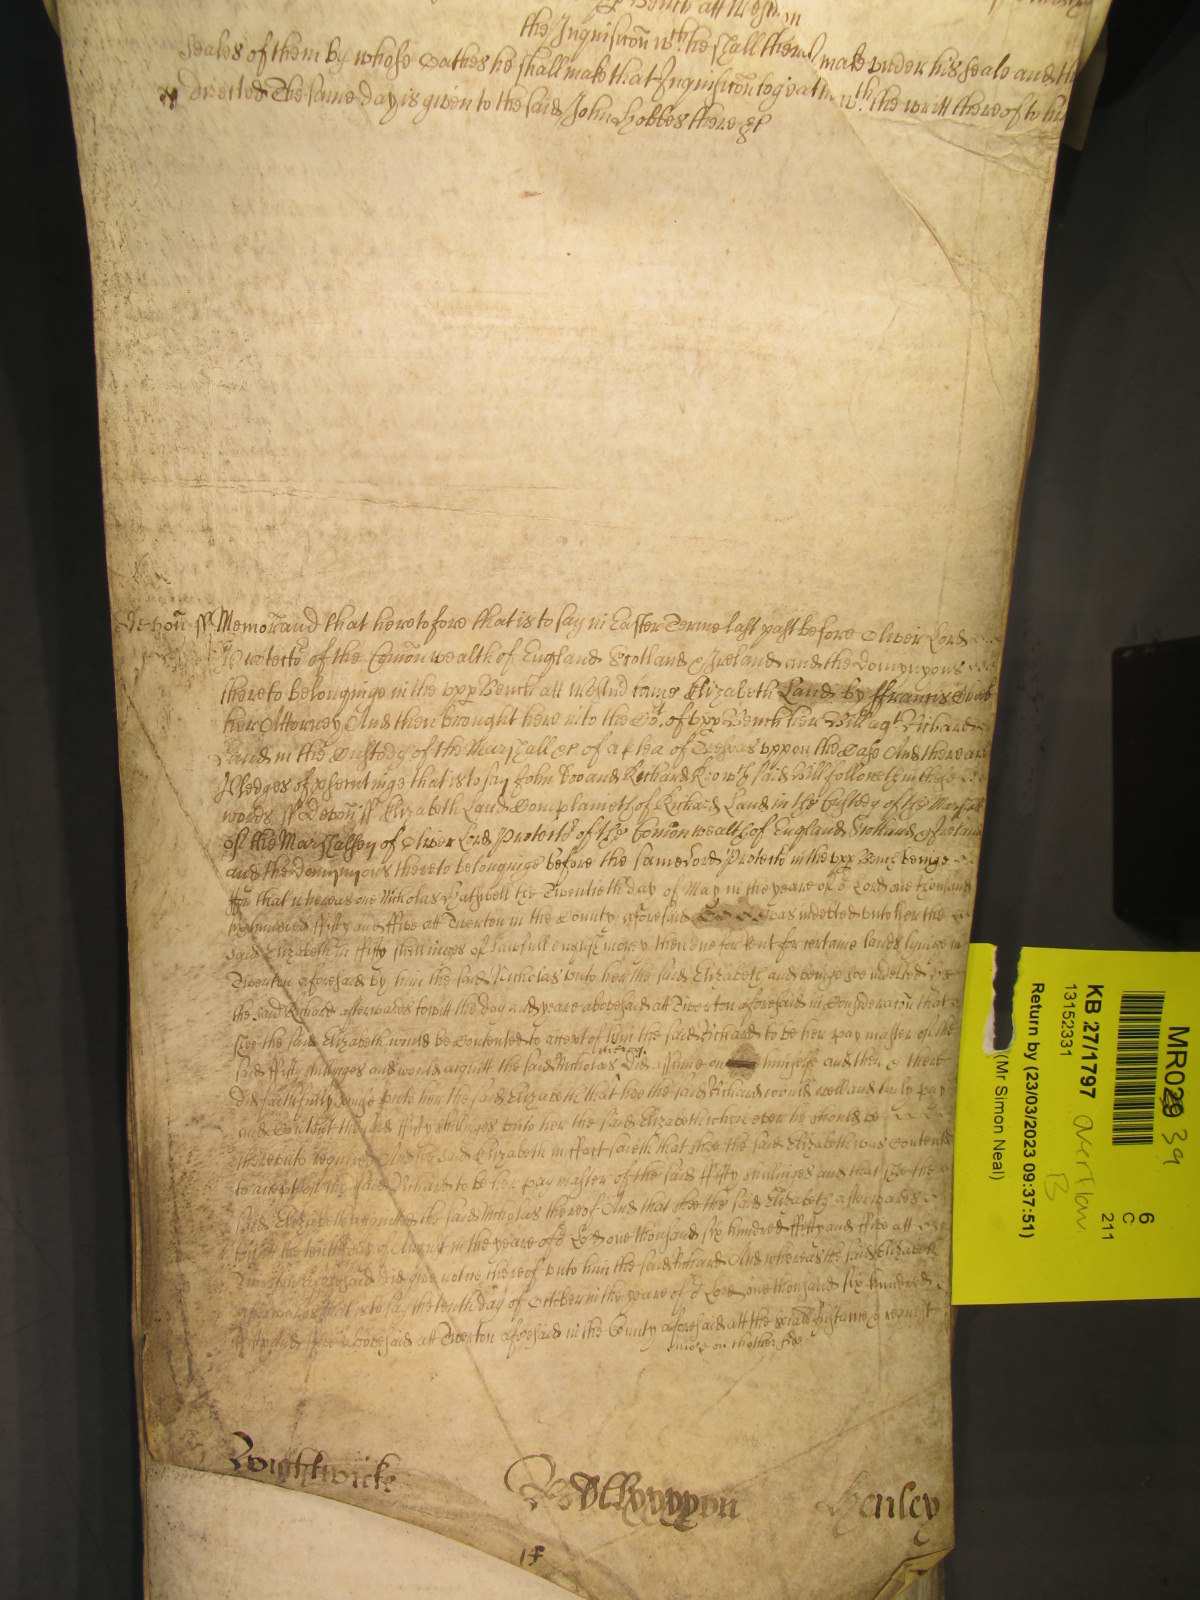 the Inquisicõn wch he shall thereof make under his seale and the
Seales of them by whose Oathes he shall make that Inquisicõn togeather wth the writt thereof to him
directed The same day is given to the said John Hobbes there &c
Devon ss Memorand that heretofore that is to say in Easter Terme last past before Oliver Lord
Protector of the Comon wealth of England Scotland & Ireland and the Domynyons
thereto belonginge in the upp Bench att Westmr came Elizabeth Land by ffrancis
her Attorney And then brought here into the Cot of upp Bench her Bill agt Richard
Land in the Custody of the Marshall &c of a plea of Trespas uppon the Case And there are
Pledges of prosecutinge that is to say John Doo and Richard Roo wch said Bill followeth in these
words ss Devon ss Elizabeth Land Complaineth of Richard Land in the Custody of the Marshall
of the Marshalsey of Oliver Lord Protector of the Comon wealth of England Scotland & Ireland
and the Domynyons thereto belonginge before the same Lord Protector in the upp Bench beinge
ffor that whereas one Nicholas the Twentieth day of May in the yeare of or Lord one thousand
six hundred ffifty and ffive att Tiverton in the County aforesaid was indebted unto her the
said Elizabeth in ffifty shillinges of lawfull english money then due for rent for certaine lands lyinge in
Tiverton aforesaid by him the said Nicholas unto her the said Elizabeth and beinge soe indebted
the said Richard afterwards to witt the day and yeare abovesaid att Tiverton aforesaid in Consideracõn that
shee the said Elizabeth would be Contented to accept of him the said Richard to be her pay master of the
said ffifty shillinges and would acquitt the said Nicholas thereof did assume on himselfe and then & there
did faithfully unto her the said Elizabeth that hee the said Richard would well and truly pay
and Content the said ffifty shillinges unto her the said Elizabeth when ever he should be
thereunto required And the said Elizabeth in ffact saieth that shee the said Elizabeth was Contented
to accept of the said Richard to be her pay master of the said ffifty shillinges and that shee the
said Elizabeth acquitted the said Nicholas thereof And that shee the said Elizabeth afterwards
to witt the tenth day of August in the yeare of or Lord one thousand six hundred ffifty and ffive att
Tiverton aforesaid did give notice thereof unto him the said Richard And whereas the said Elizabeth
afterwards that is to say the tenth day of October in the yeare of or Lord one thousand six hundred
ffifty and ffive abovesaid att Tiverton aforesaid in the County aforesaid att the speciall Instance & request
more on thother side
Wightwicke
Henley
MR029 39
KB 27/1797
13152331
Return by (23/03/2023 09:37:51)
(Mr Simon Neal)
overflow
B
6
C
211